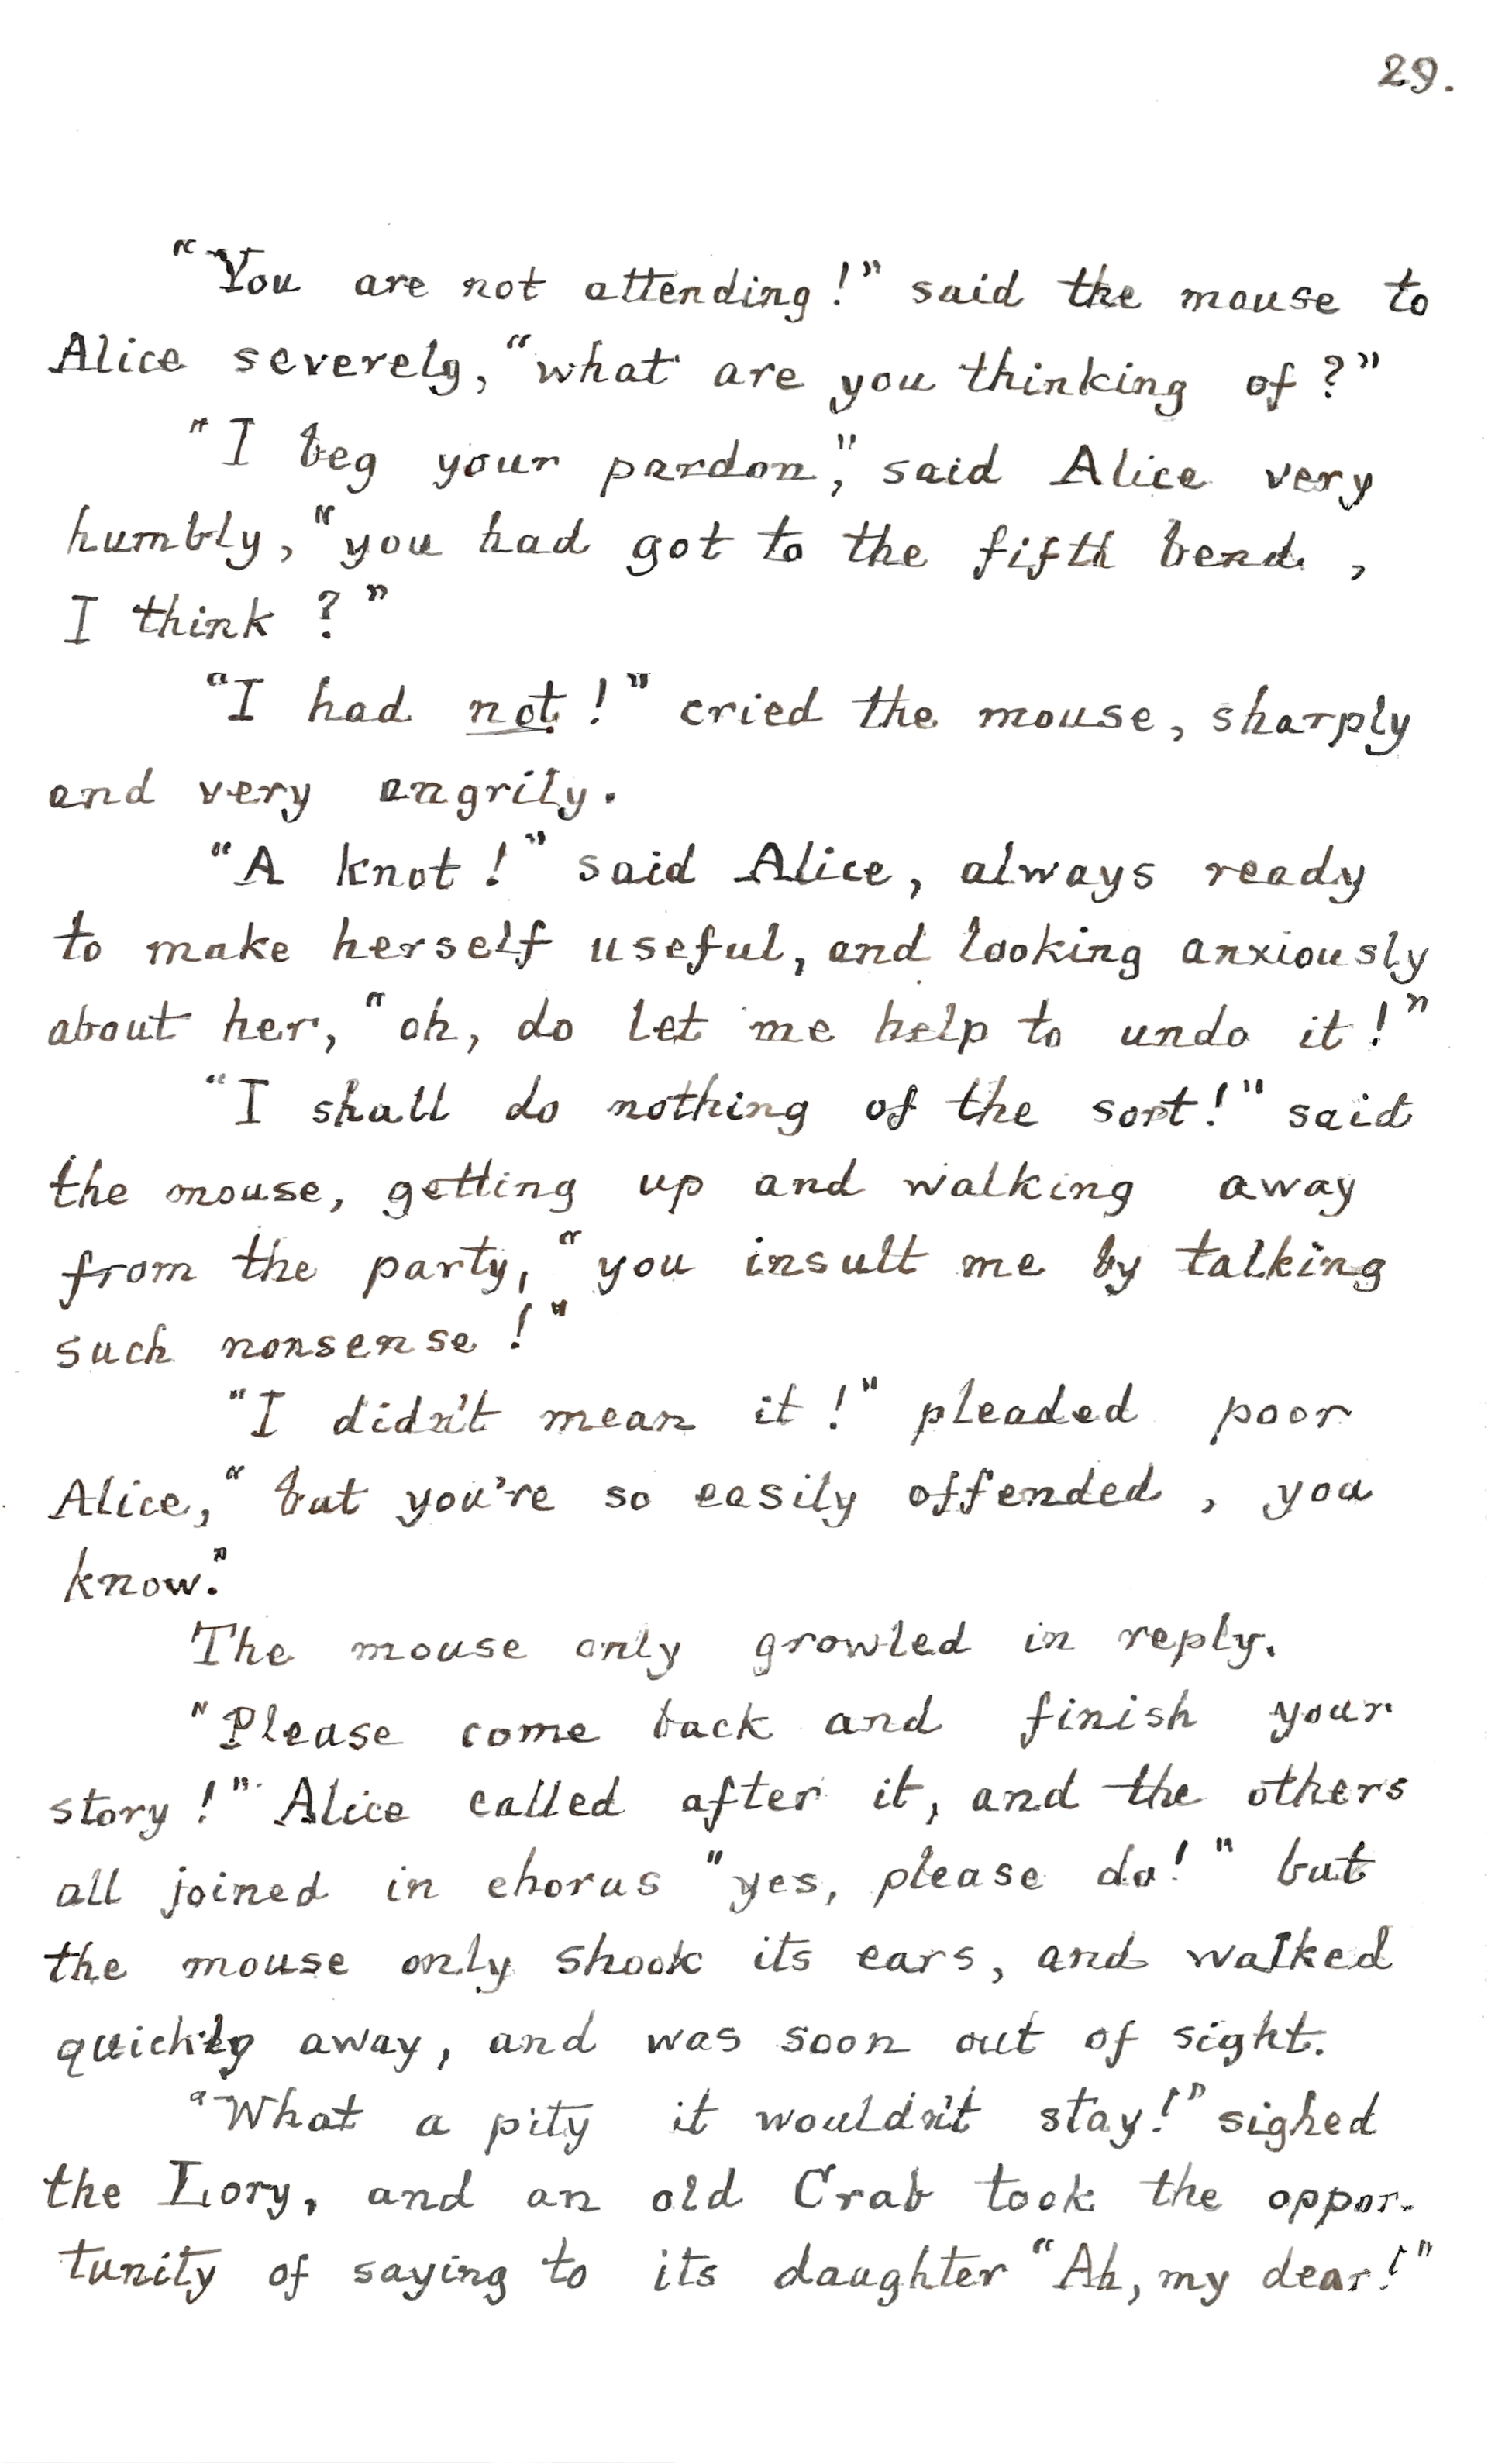 29.
"You are not attending!" said the mouse to
Alice severely, "what are you thinking of?"
"I beg your pardon," said Alice very
humbly, "you had got to the fifth bend,
I think?"
"I had not!" cried the mouse, sharply
and very angrily.
"A knot!" said Alice, always ready
to make herself useful, and looking anxiously
about her, "oh, do let me help to undo it!"
"I shall do nothing of the sort!" said
the mouse, getting up and walking away
from the party, "you insult me by talking
such nonsense!"
"I didn't mean it!" pleaded poor
Alice, "but you're so easily offended, you
know."
The mouse only growled in reply.
"Please come back and finish your
story!" Alice called after it, and the others
all joined in chorus "yes, please do!" but
the mouse only shook its ears, and walked
quickly away, and was soon out of sight.
"What a pity it wouldn't stay!" sighed
the Lory, and an old Crab took the oppor-
tunity of saying to its daughter "Ah, my dear!"